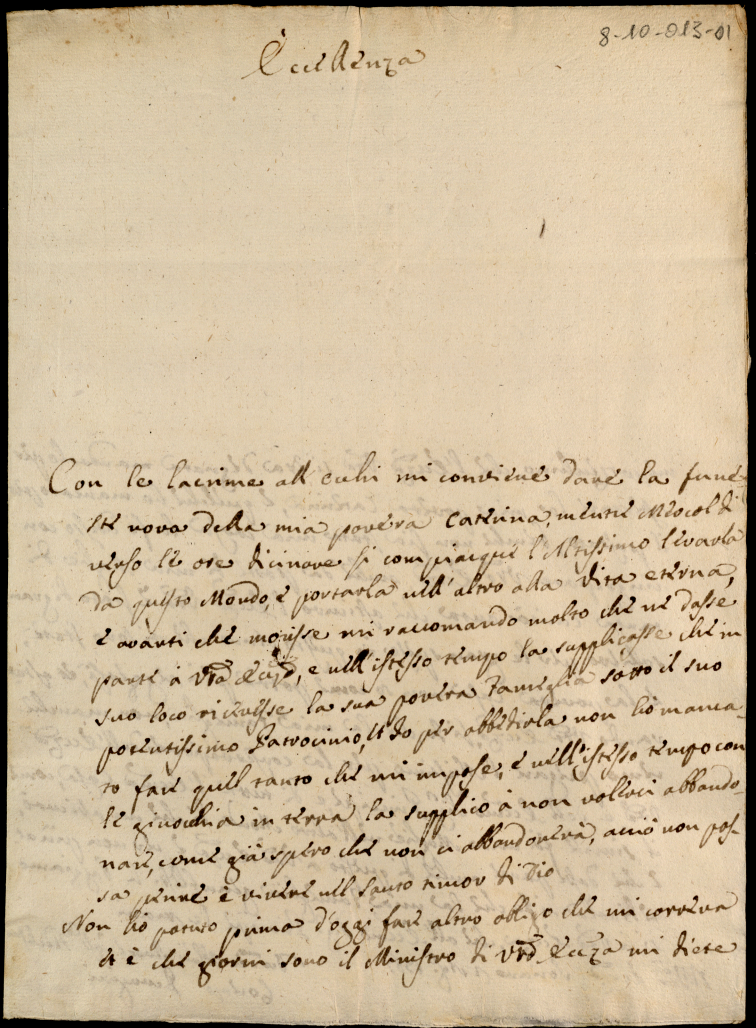 8-10-013-01
Eccellenza
Con le lacrime all ochi mi conviene dare la fune
ste nova della mia povera Caterina, mentre Mercoldi
verso le ore dicinove si compiacque l'Altissimo levarla
da questo Mondo, e portarla nell'altro alla vita eterna,
e avanti che morisse mi raccomando molto che ne dasse
parte à Vrā Ecc.zā, e nell'istesso tempo la supplicasse che in
suo loco ricevesse la sua povera Fameglia sotto il suo
potentissimo Patrocinio, et Io per obbedirla non hò manca-
to fare quel tanto che mi impose, e nell'istesso tempo con
le ginochia in terra la supplico à non volerci abbando-
nare, come già spero che non ci abbandonerà, acciò non pos-
sa perire è vivere nel Santo timor di Dio
Non hò potuto prima d'oggi fare altro obligo che mi correva
et è che giorni sono il Ministro di Vrā Eccza mi diete